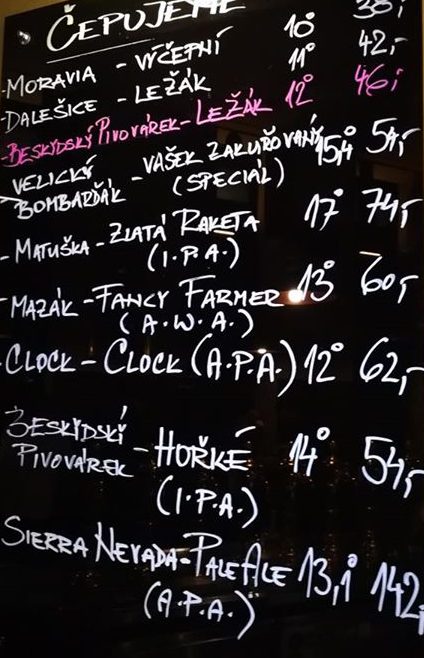 ČEPUJEME
-MORAVIA - VÝČEPNÍ 10° 38,-
-DALEŠICE - LEŽÁK 11° 42,-
-BESKYDSKÝ PIVOVÁREK - LEŽÁK 12° 46,-
VELICKÝ BOMBARĎÁK - VAŠEK ZAKUŘOVANÝ 15,4° 54,-
(SPECIÁL)
- MATUŠKA - ZLATÁ RAKETA 17° 74,-
(I.P.A.)
- MAZÁK - FANCY FARMER 13° 60,-
(A.W.A.)
-CLOCK - CLOCK (A.P.A.) 12° 62,-
BESKYDSKÝ PIVOVÁREK - HOŘKÉ 14° 54,-
(I.P.A.)
SIERRA NEVADA - PALE ALE 13,1° 142,-
(A.P.A.)